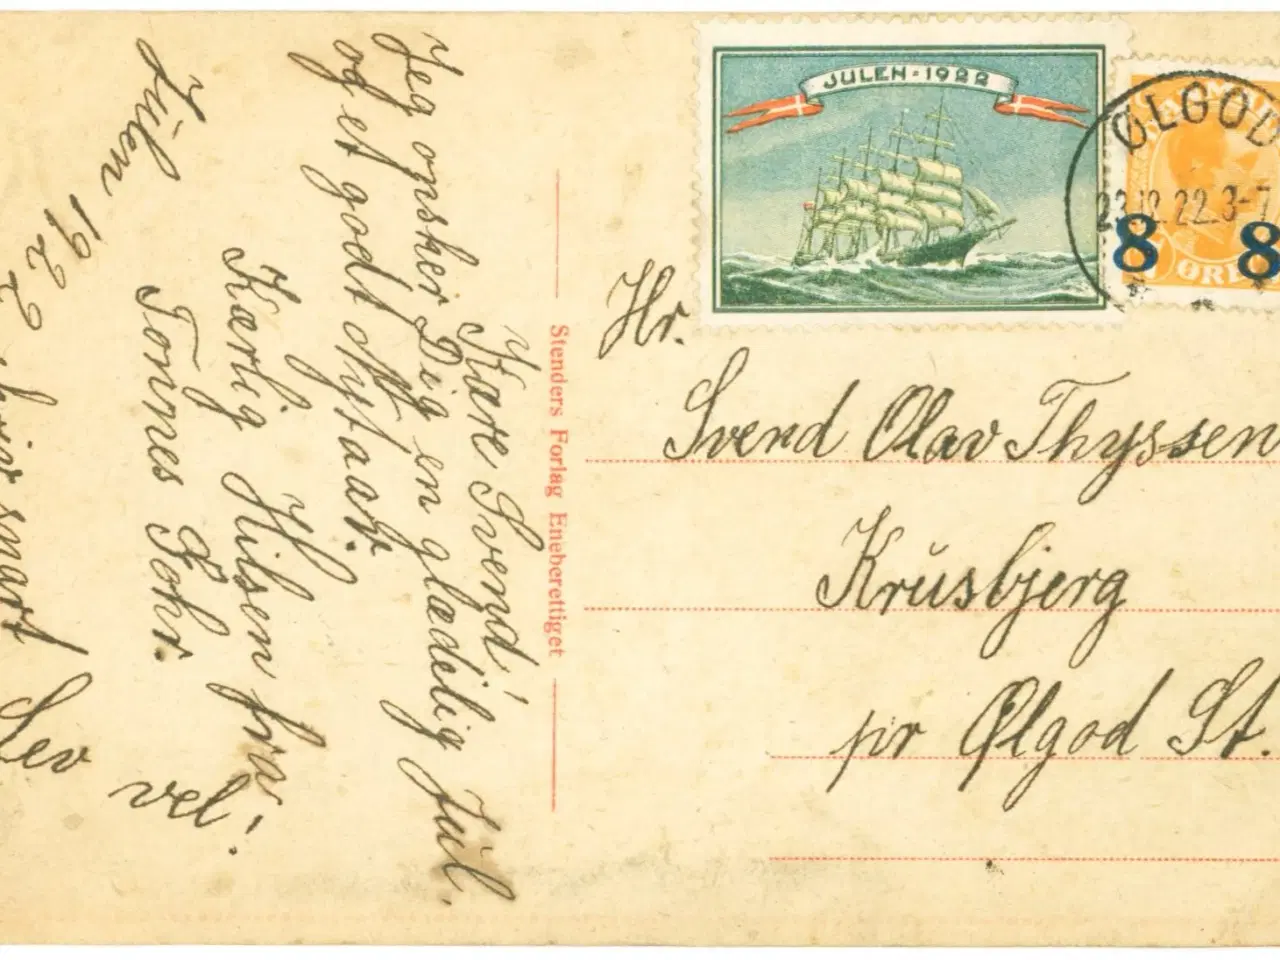 JULEN·1922
ØLGOD
23.12.22.3-7
8 8
ØRE
Hr.
Svend Olav Thyssen
Krŭsbjerg
pr Ølgod St.
Stenders Forlag Eneberettiget
Kære Svend!
Jeg ønsker Dig en glædelig Jul.
og et godt Nytaar.
Kærlig Hilsen fra
Tonnes Fohr.
Julen 1922
Lev
vel!